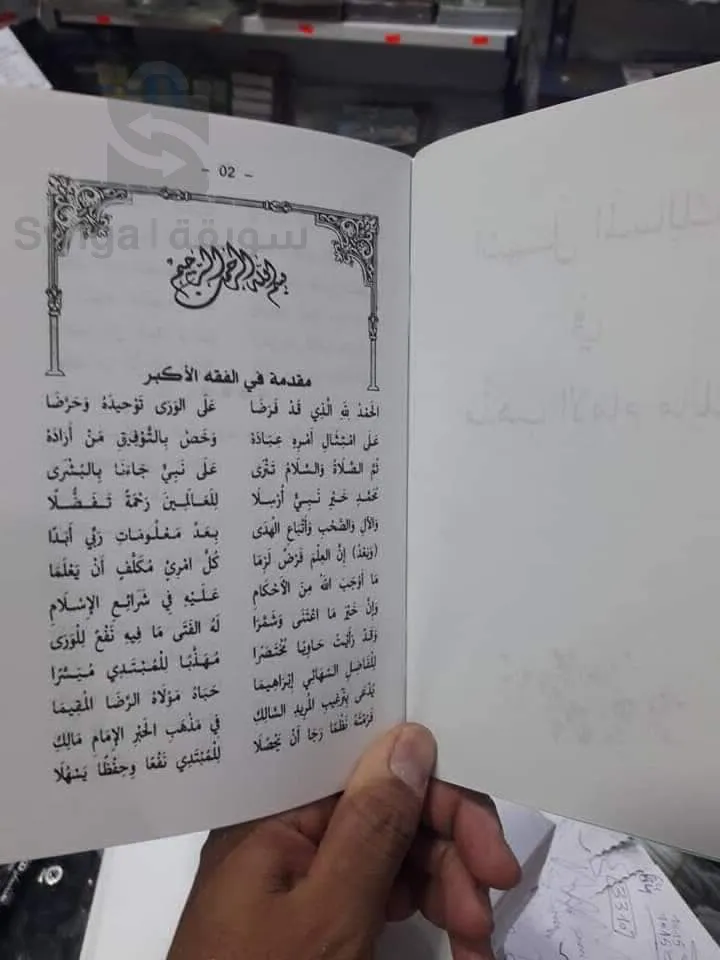 Swiga | سويقة
- 02 -
بسم الله الرحمن الرحيم
مقدمة في الفقه الأكبر
الحَمْدُ للهِ الَّذِي قَدْ فَرَضَا عَلَى الوَرَى تَوْحِيدَهُ وَحَرَّضَا
عَلَى امْتِثَالِ أَمْرِهِ عِبَادَهْ وَخَصَّ بِالتَّوْفِيقِ مَنْ أَرَادَهْ
ثُمَّ الصَّلَاةُ وَالسَّلَامُ تَتْرَى عَلَى نَبِيٍّ جَاءَنَا بِالبُشْرَى
مُحَمَّدٍ خَيْرِ نَبِيٍّ أُرْسِلَا لِلْعَالَمِينَ رَحْمَةً تَفَضُّلَا
وَالآلِ وَالصَّحْبِ وَأَتْبَاعِ الهُدَى بِعَدِّ مَعْلُومَاتِ رَبِّي أَبَدَا
(وَبَعْدُ) إِنَّ العِلْمَ فَرْضٌ لَزِمَا كُلَّ امْرِئٍ مُكَلَّفٍ أَنْ يَعْلَمَا
مَا أَوْجَبَ اللهُ مِنَ الأَحْكَامِ عَلَيْهِ فِي شَرَائِعِ الإِسْلَامِ
وَإِنَّ خَيْرَ مَا اعْتَنَى وَشَمَّرَا لَهُ الفَتَى مَا فِيهِ نَفْعٌ لِلْوَرَى
وَقَدْ رَأَيْتُ حَاوِيًا مُخْتَصَرَا مُهَذَّبًا لِلْمُبْتَدِي مُيَسَّرَا
لِلْفَاضِلِ السَّهَائِي إِبْرَاهِيمَا حَبَاهُ مَوْلَاهُ الرِّضَا المُقِيمَا
يُدْعَى بِتَرْغِيبِ المُرِيدِ السَّالِكِ فِي مَذْهَبِ الحَبْرِ الإِمَامِ مَالِكِ
فَرُمْتُهُ نَظْمًا رَجَا أَنْ يَحْصُلَا لِلْمُبْتَدِي نَفْعًا وَحِفْظًا يَسْهُلَا